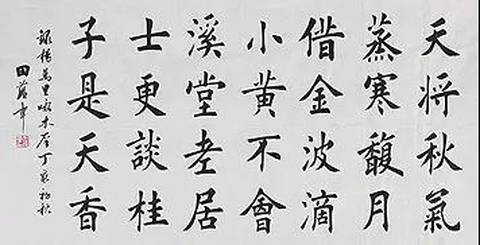 天将秋氣
蒸寒馥月
借金波滴
小黄不會
溪堂老居
士更談桂
子是天香
録楊萬里咏木犀丁亥初秋
田蘊章